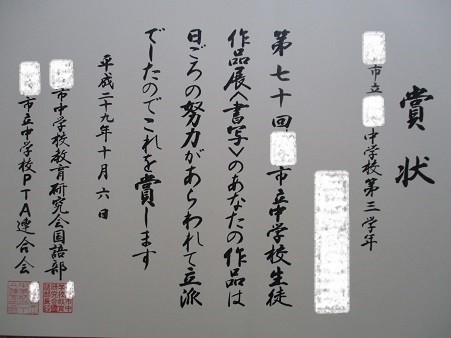 賞状
市立 中学校第三学年
第七十回 市立中学校生徒
作品展〈書写〉のあなたの作品は
日ごろの努力があらわれて立派
でしたのでこれを賞します
平成二十九年十月六日
市中学校教育研究会国語部
市立中学校PTA連合会